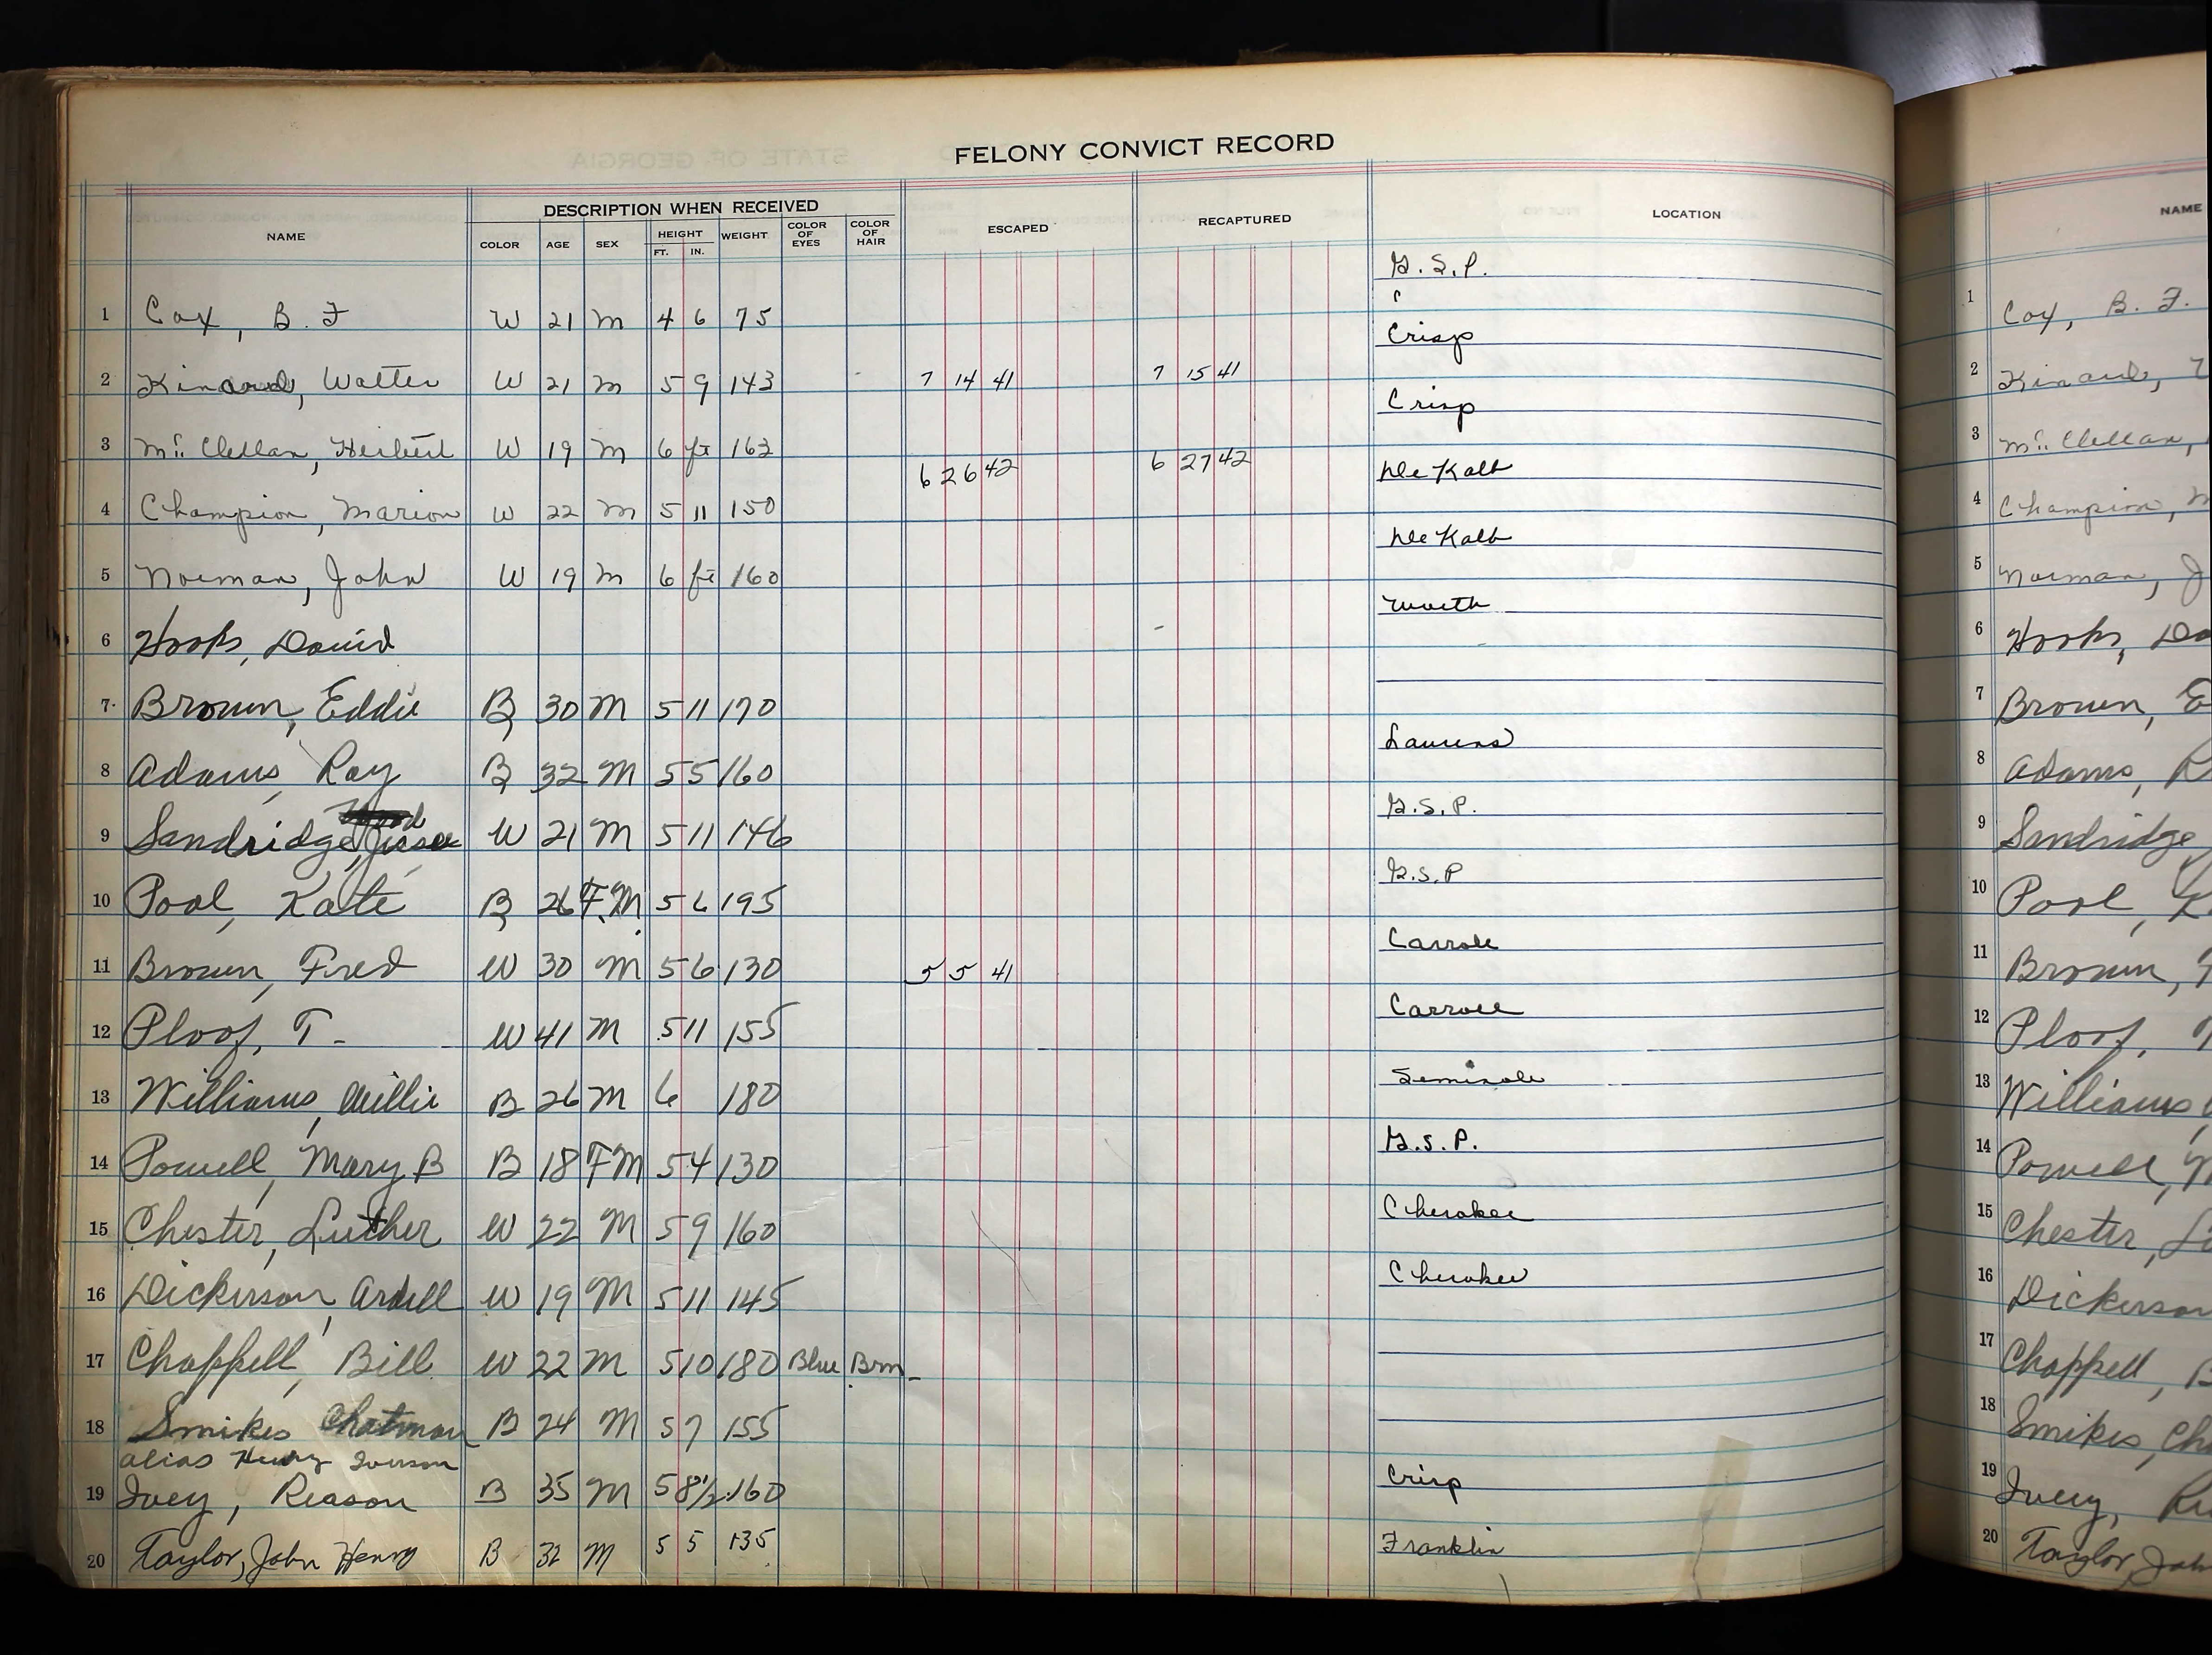 FELONY CONVICT RECORD
NAME
DESCRIPTION WHEN RECEIVED
COLOR AGE SEX HEIGHT FT. IN. WEIGHT COLOR OF EYES COLOR OF HAIR
ESCAPED
RECAPTURED
LOCATION
G.S.P.
1 Cox, B. F W 21 M 4 6 75
Crisp
2 Kinard, Walter W 21 M 5 9 143 7 14 41 7 15 41
Crisp
3 Mc Clellan, Herbert W 19 M 6 ft 163
6 26 42 6 27 42 De Kalb
4 Champion, Marion W 22 M 5 11 150
De Kalb
5 Norman, John W 19 M 6 ft 160
Worth
6 Hooks, David
7 Brown, Eddie B 30 M 5 11 170
Laurens
8 Adams, Roy B 32 M 5 5 160
G.S.P.
9 Sandridge, Jesse W 21 M 5 11 146
G.S.P
10 Pool, Kate B 26 F.M 5 6 195
Carroll
11 Brown, Fred W 30 M 5 6 130 5 5 41
Carroll
12 Ploof, T. W 41 M 5 11 155
Seminole
13 Williams, Willie B 26 M 6 180
G.S.P.
14 Powell, Mary B B 18 FM 5 4 130
Cherokee
15 Chester, Luther W 22 M 5 9 160
Cherokee
16 Dickerson, Ardell W 19 M 5 11 145
17 Chappell, Bill W 22 M 5 10 180 Blue Brn
18 Smikes Chatman B 24 M 5 7 155
alias Henry Iverson
Crisp
19 Ivey, Reason B 35 M 5 8 1/2 160
Franklin
20 Taylor, John Henry B 32 M 5 5 135
NAME
1 Cox, B. F.
2 Kinard,
3 Mc Clellan,
4 Champion,
5 Norman, J
6 Hooks, Da
7 Brown, E
8 Adams, R
9 Sandridge
10 Pool, K
11 Brown,
12 Ploof,
13 Williams
14 Powell,
15 Chester, Lu
16 Dickerson
17 Chappell, B
18 Smikes, Ch
19 Ivey,
20 Taylor, Joh